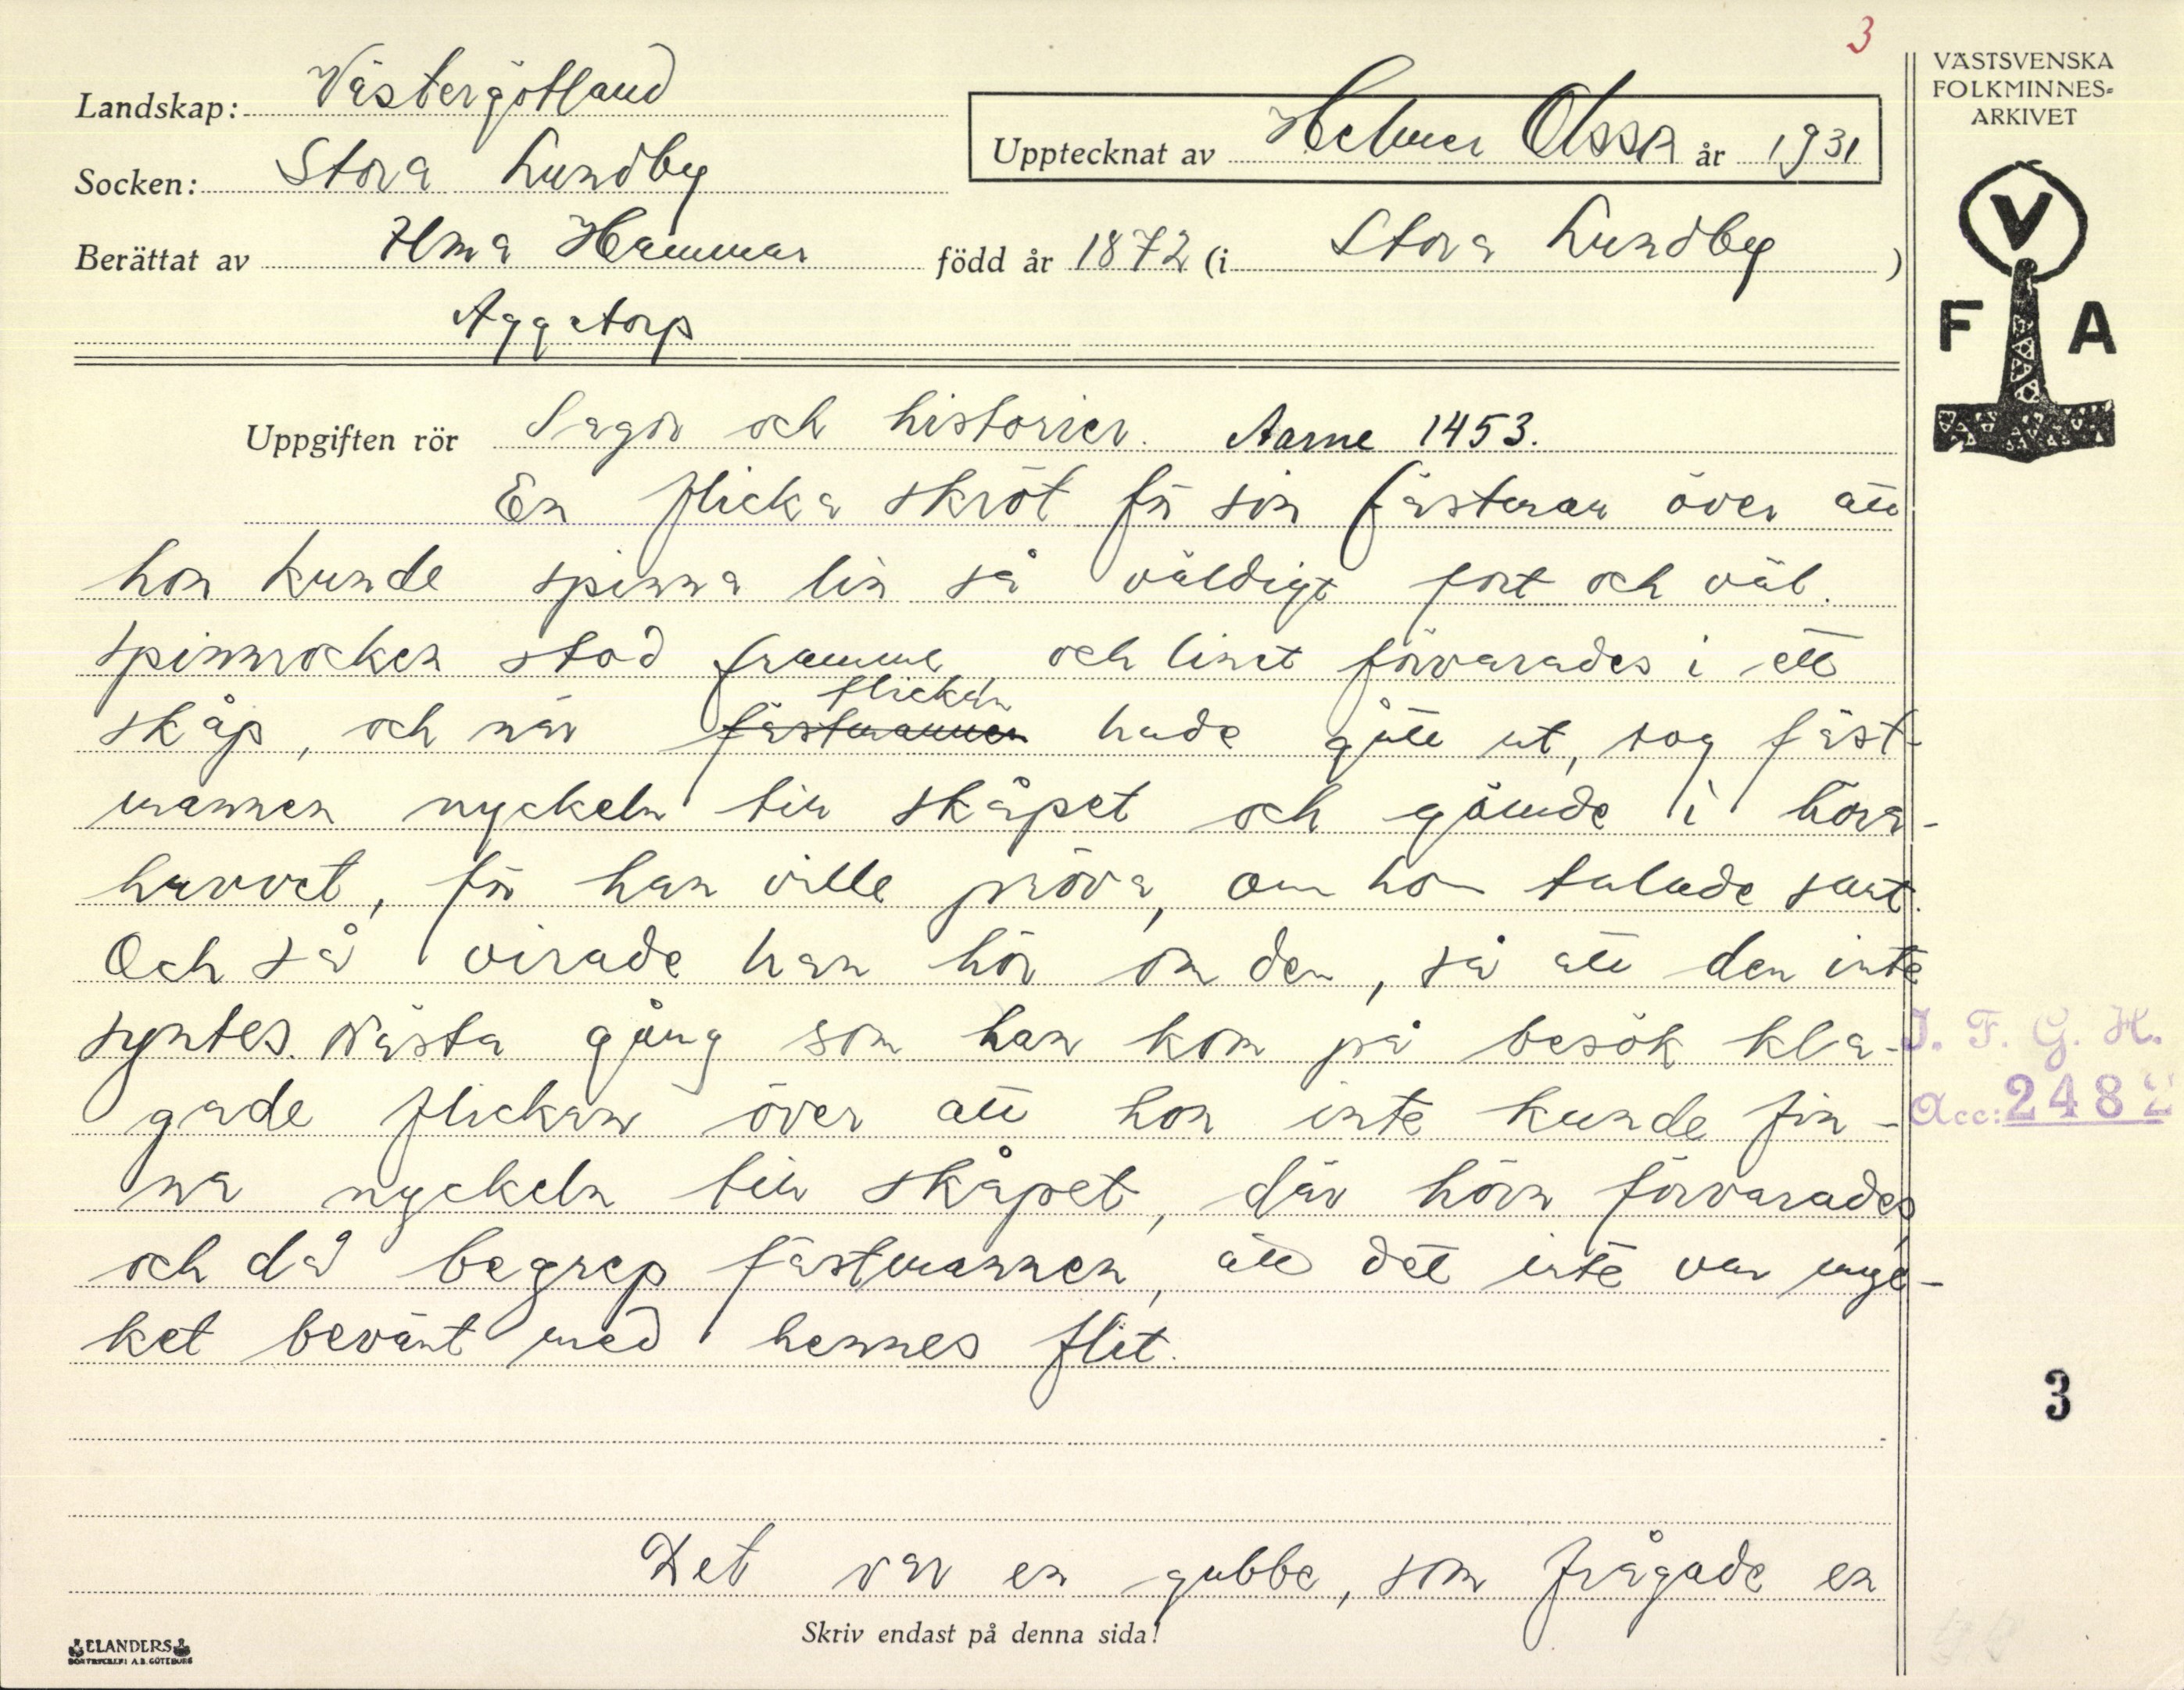 3
VÄSTSVENSKA
FOLKMINNES-
ARKIVET
Landskap: Västergötland
Upptecknat av Helmer Olsson år 1931
Socken: Stora Lundby
Berättat av Ilma Hammar född år 1872 (i Stora Lundby)
Aggetorp
V
F A
Uppgiften rör Sagor och historier. Aarne 1453.
En flicka skröt för sin fästman över att
hon kunde spinna lin så väldigt fort och väl.
Spinnrocken stod framme och linet förvarades i ett
skåp, och när fästmannen flickan hade gått ut, tog fäst-
mannen nyckeln till skåpet och gömde i hörn-
huvvet, för han ville pröva, om hon talade sant.
Och så virade han hör om den, så att den inte
syntes. Nästa gång som han kom på besök kla-
gade flickan över att hon inte kunde fin-
na nyckeln till skåpet, där hörn förvarades,
och då begrep fästmannen, att det inte var myc-
ket bevänt med hennes flit.
I. F. G. H.
Acc: 2482
3
Det var en gubbe, som frågade en
Skriv endast på denna sida!
ELANDERS
BOKTRYCKERI A.B. GÖTEBORG